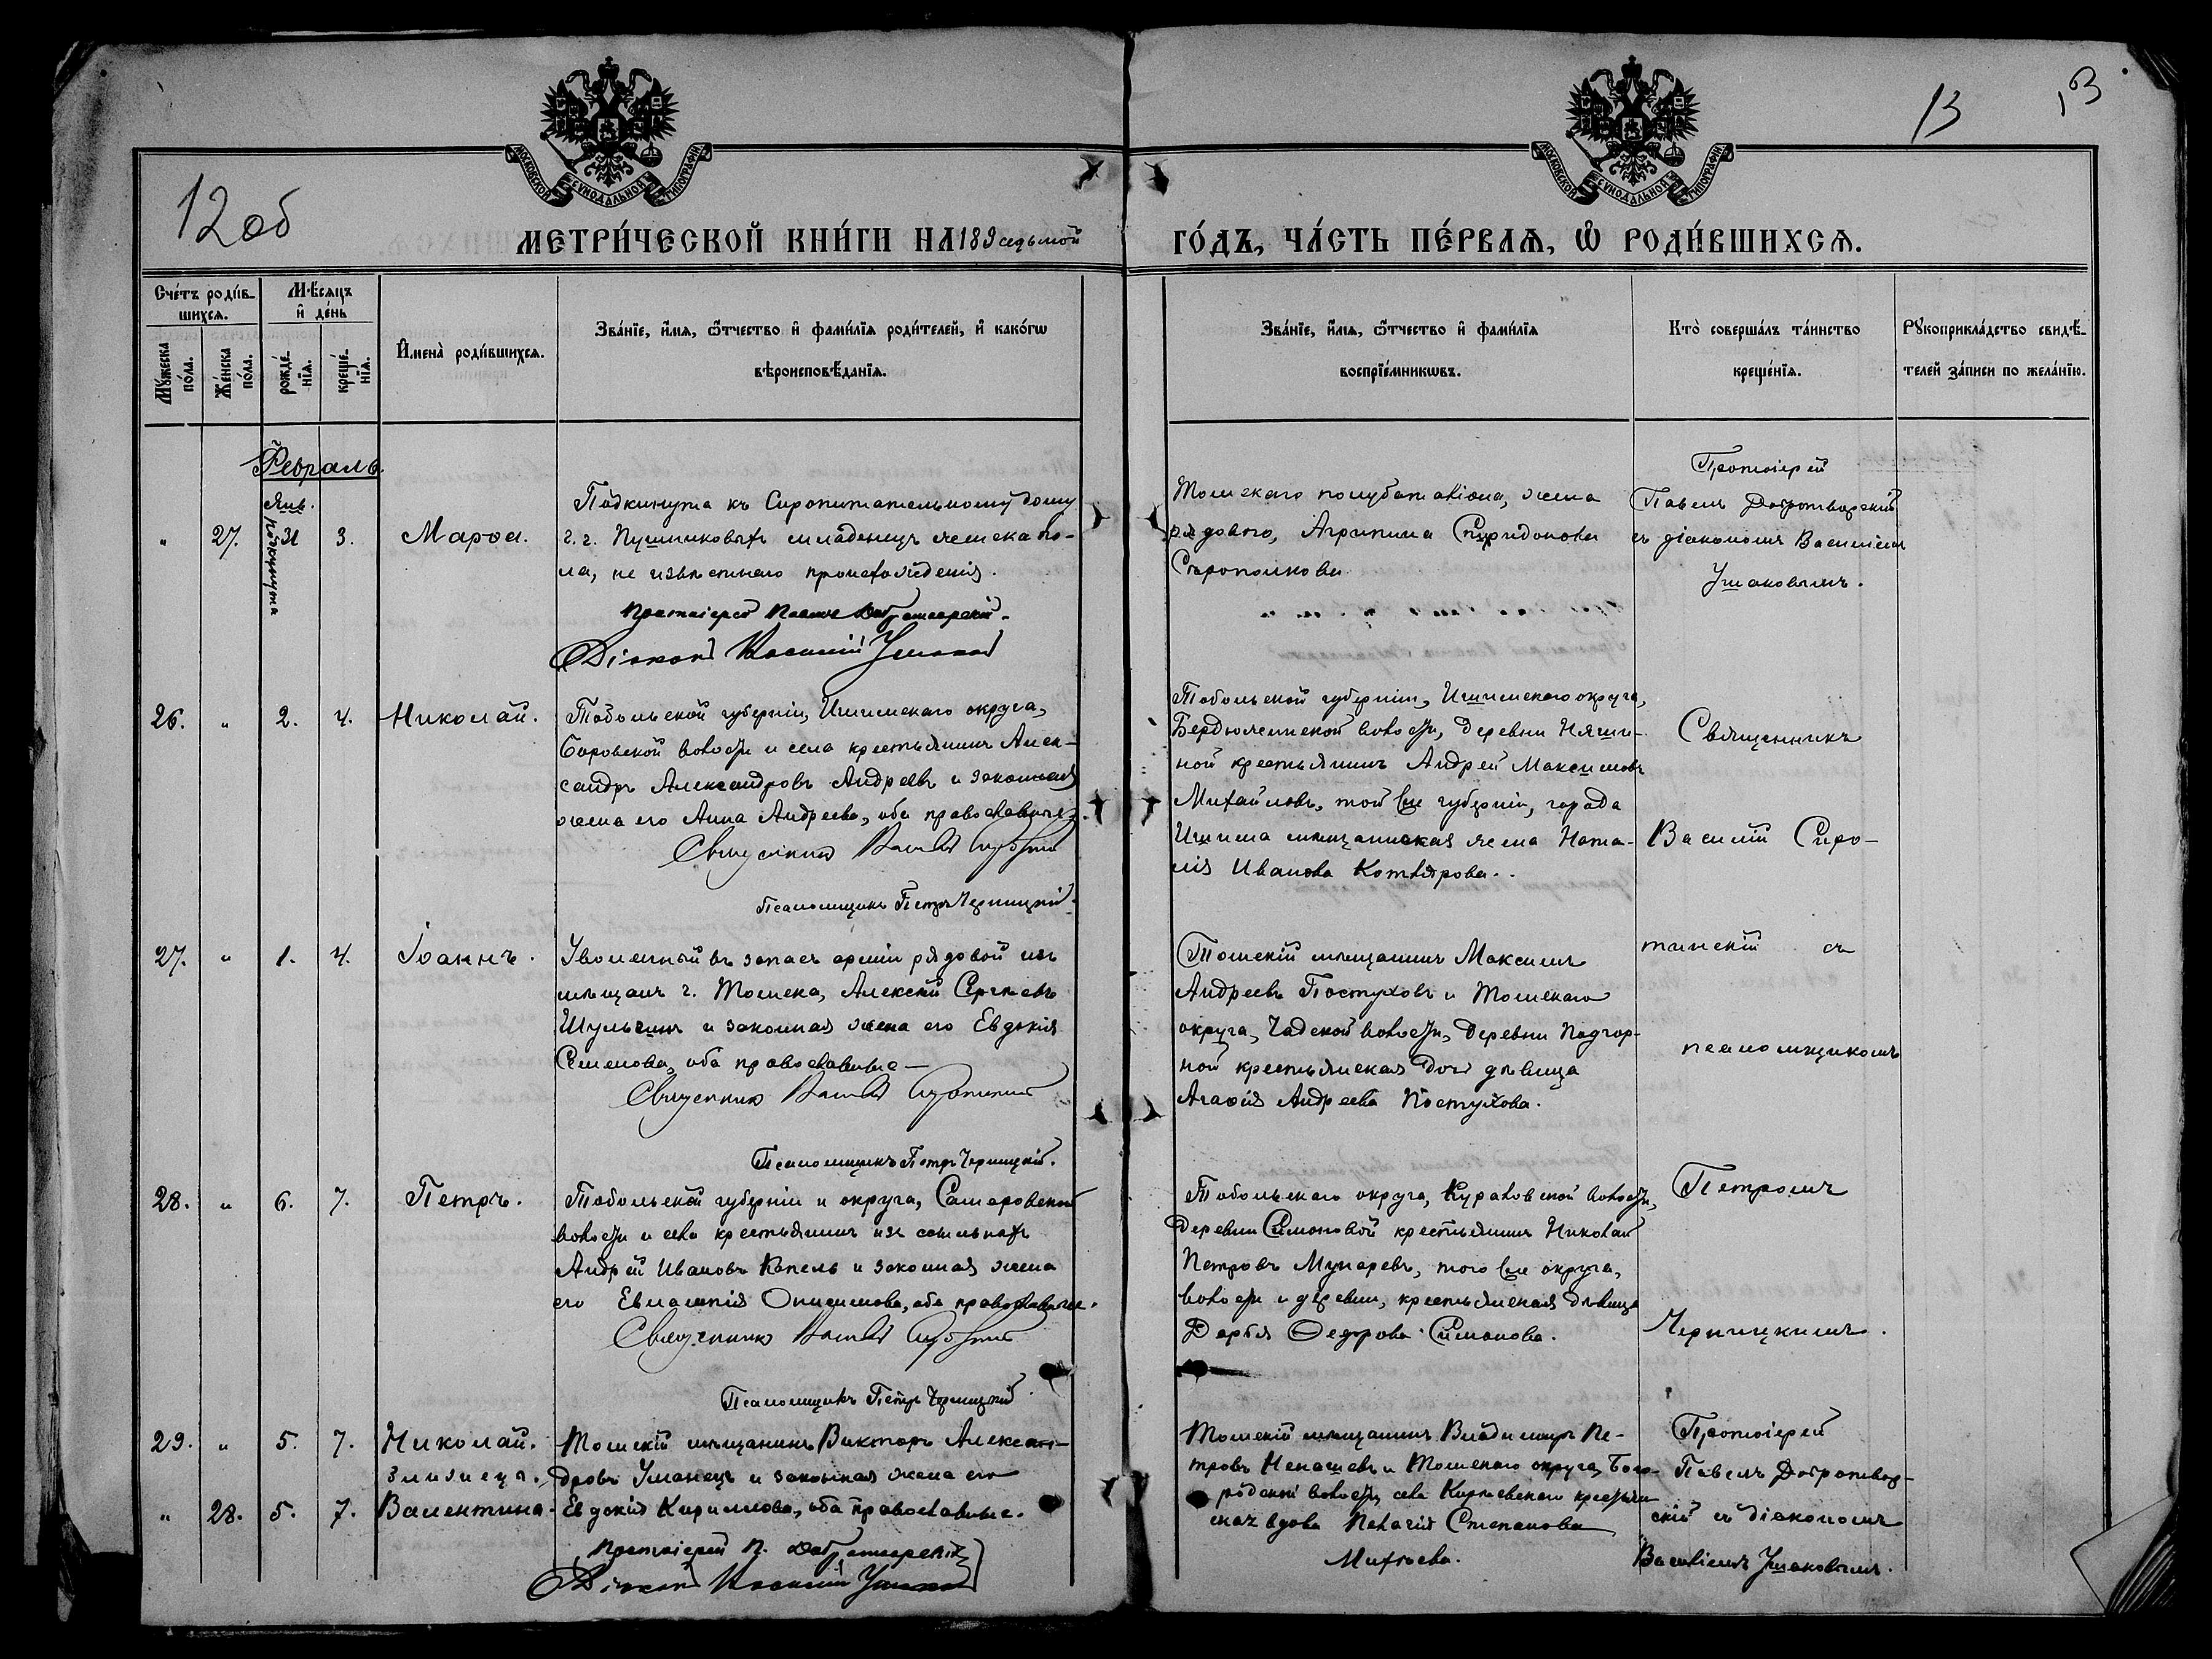 13
13
МОСКОВСКОЙ СѴНОДАЛЬНОЙ ТИПОГРАФІИ
МОСКОВСКОЙ СѴНОДАЛЬНОЙ ТИПОГРАФІИ
12 об
МЕТРИ́ЧЕСКОЙ КНИ́ГИ НА 189 седьмой
ГО́ДЪ, ЧА́СТЬ ПЕ́РВАЯ, Ѽ РОДИ́ВШИХСЯ.
Сче́тъ роди́в-
шихся.
Мѣ́сяцъ
и҆ де́нь
Му́жеска
по́ла.
Же́нска
по́ла.
рожде́-
нїя.
креще́-
нїя.
И҆мена̀ роди́вшихся.
Зва́нїе, и҆́мя, ѻ҆́тчество и҆ фами́лїя роди́телей, и҆ како́гѡ
вѣроисповѣ́данїя.
Зва́нїе, и҆́мя, ѻ҆́тчество и҆ фами́лїя
воспрїе́мникѡвъ.
Кто̀ соверша́лъ та́инство
креще́нїя.
Рукоприкла́дство свидѣ́-
телей за́писи по жела́нїю.
Февраль.
Янв.
" 27. 31 3. Марѳа.
подкинута
Подкинута къ Сиропитательному дому
г.г. Пушниковыхъ младенецъ женска по-
ла, не извѣстнаго происхожденія.
Протоіерей Павелъ Добротворскій.
Діаконъ Василій Ушаковъ
Томскаго полубаталіона, жена
рядового, Агрипина Спиридонова
Протоіерей
Павелъ Добротворскій
съ діакономъ Василіемъ
Ушаковымъ.
26. " 2. 4. Николай.
Тобольской губерніи, Ишимскаго округа,
Боровской волости и села крестьянинъ Алек-
сандръ Александровъ Андреевъ и законная
жена его Анна Андреева, оба православные.
Священникъ Василій Сиротинскій
Псаломщикъ Петръ Черницкій.
Тобольской губерніи, Ишимскаго округа,
Бердюжинской волости, деревни Няши-
ной крестьянинъ Андрей Максимовъ
Михайловъ, той же губерніи, города
Ишима мѣщанская жена Ната-
лія Иванова
Священникъ
Василій Сиро-
27. " 1. 4. Іоаннъ.
Уволенный въ запасъ арміи рядовой изъ
мѣщанъ г. Томска, Алексѣй Сергѣевъ
Шульгинъ и законная жена его Евдокія
Семенова, оба православные —
Священникъ Василій Сиротинскій
Псаломщикъ Петръ Черницкій.
Томскій мѣщанинъ Максимъ
Андреевъ Пастуховъ и Томскаго
округа, волости, деревни Подгор-
ной крестьянская дочь дѣвица
Агаѳія Андреева Пастухова.
тинскій съ
псаломщикомъ
28. " 6. 7. Петръ.
Тобольской губерніи и округа, Самаровской
волости и села крестьянинъ изъ ссыльныхъ
Андрей Ивановъ Капель и законная жена
его Евлампія Онисимова, оба православные.
Священникъ Василій Сиротинскій
Псаломщикъ Петръ Черницкій
Тобольскаго округа, волости,
деревни Симоновой крестьянинъ Николай
Петровъ Мунаревъ, того же округа,
волости и деревни, крестьянская дѣвица
Дарья Ѳедорова Симонова.
Петромъ
Черницкимъ.
29. " 5. 7. Николай.
близнецы.
" 28. 5. 7. Валентина.
Томскій мѣщанинъ Викторъ Алексан-
дровъ Уманецъ и законная жена его
Евдокія Кириллова, оба православные.
Протоіерей П. Добротворскій
Діаконъ Василій Ушаковъ
Томскій мѣщанинъ Владимиръ Пе-
тровъ Ненашевъ и Томскаго округа, Бого-
родской волости, села крестьян-
ская вдова Пелагія Степанова
Михѣева.
Протоіерей
Павелъ Добротвор-
скій съ діакономъ
Василіемъ Ушаковымъ.